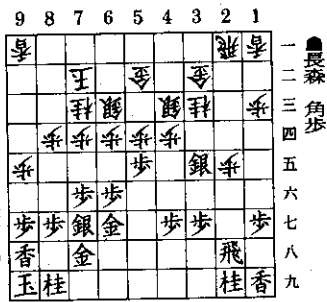 9 8 7 6 5 4 3 2 1
香 飛 香 一
王 金 金 二
桂 銀 銀 桂 歩 三
歩 歩 歩 歩 歩 四
歩 歩 銀 歩 五
歩 歩 六
歩 歩 銀 金 歩 歩 歩 七
香 金 飛 八
玉 桂 桂 香 九
☗長森 角歩